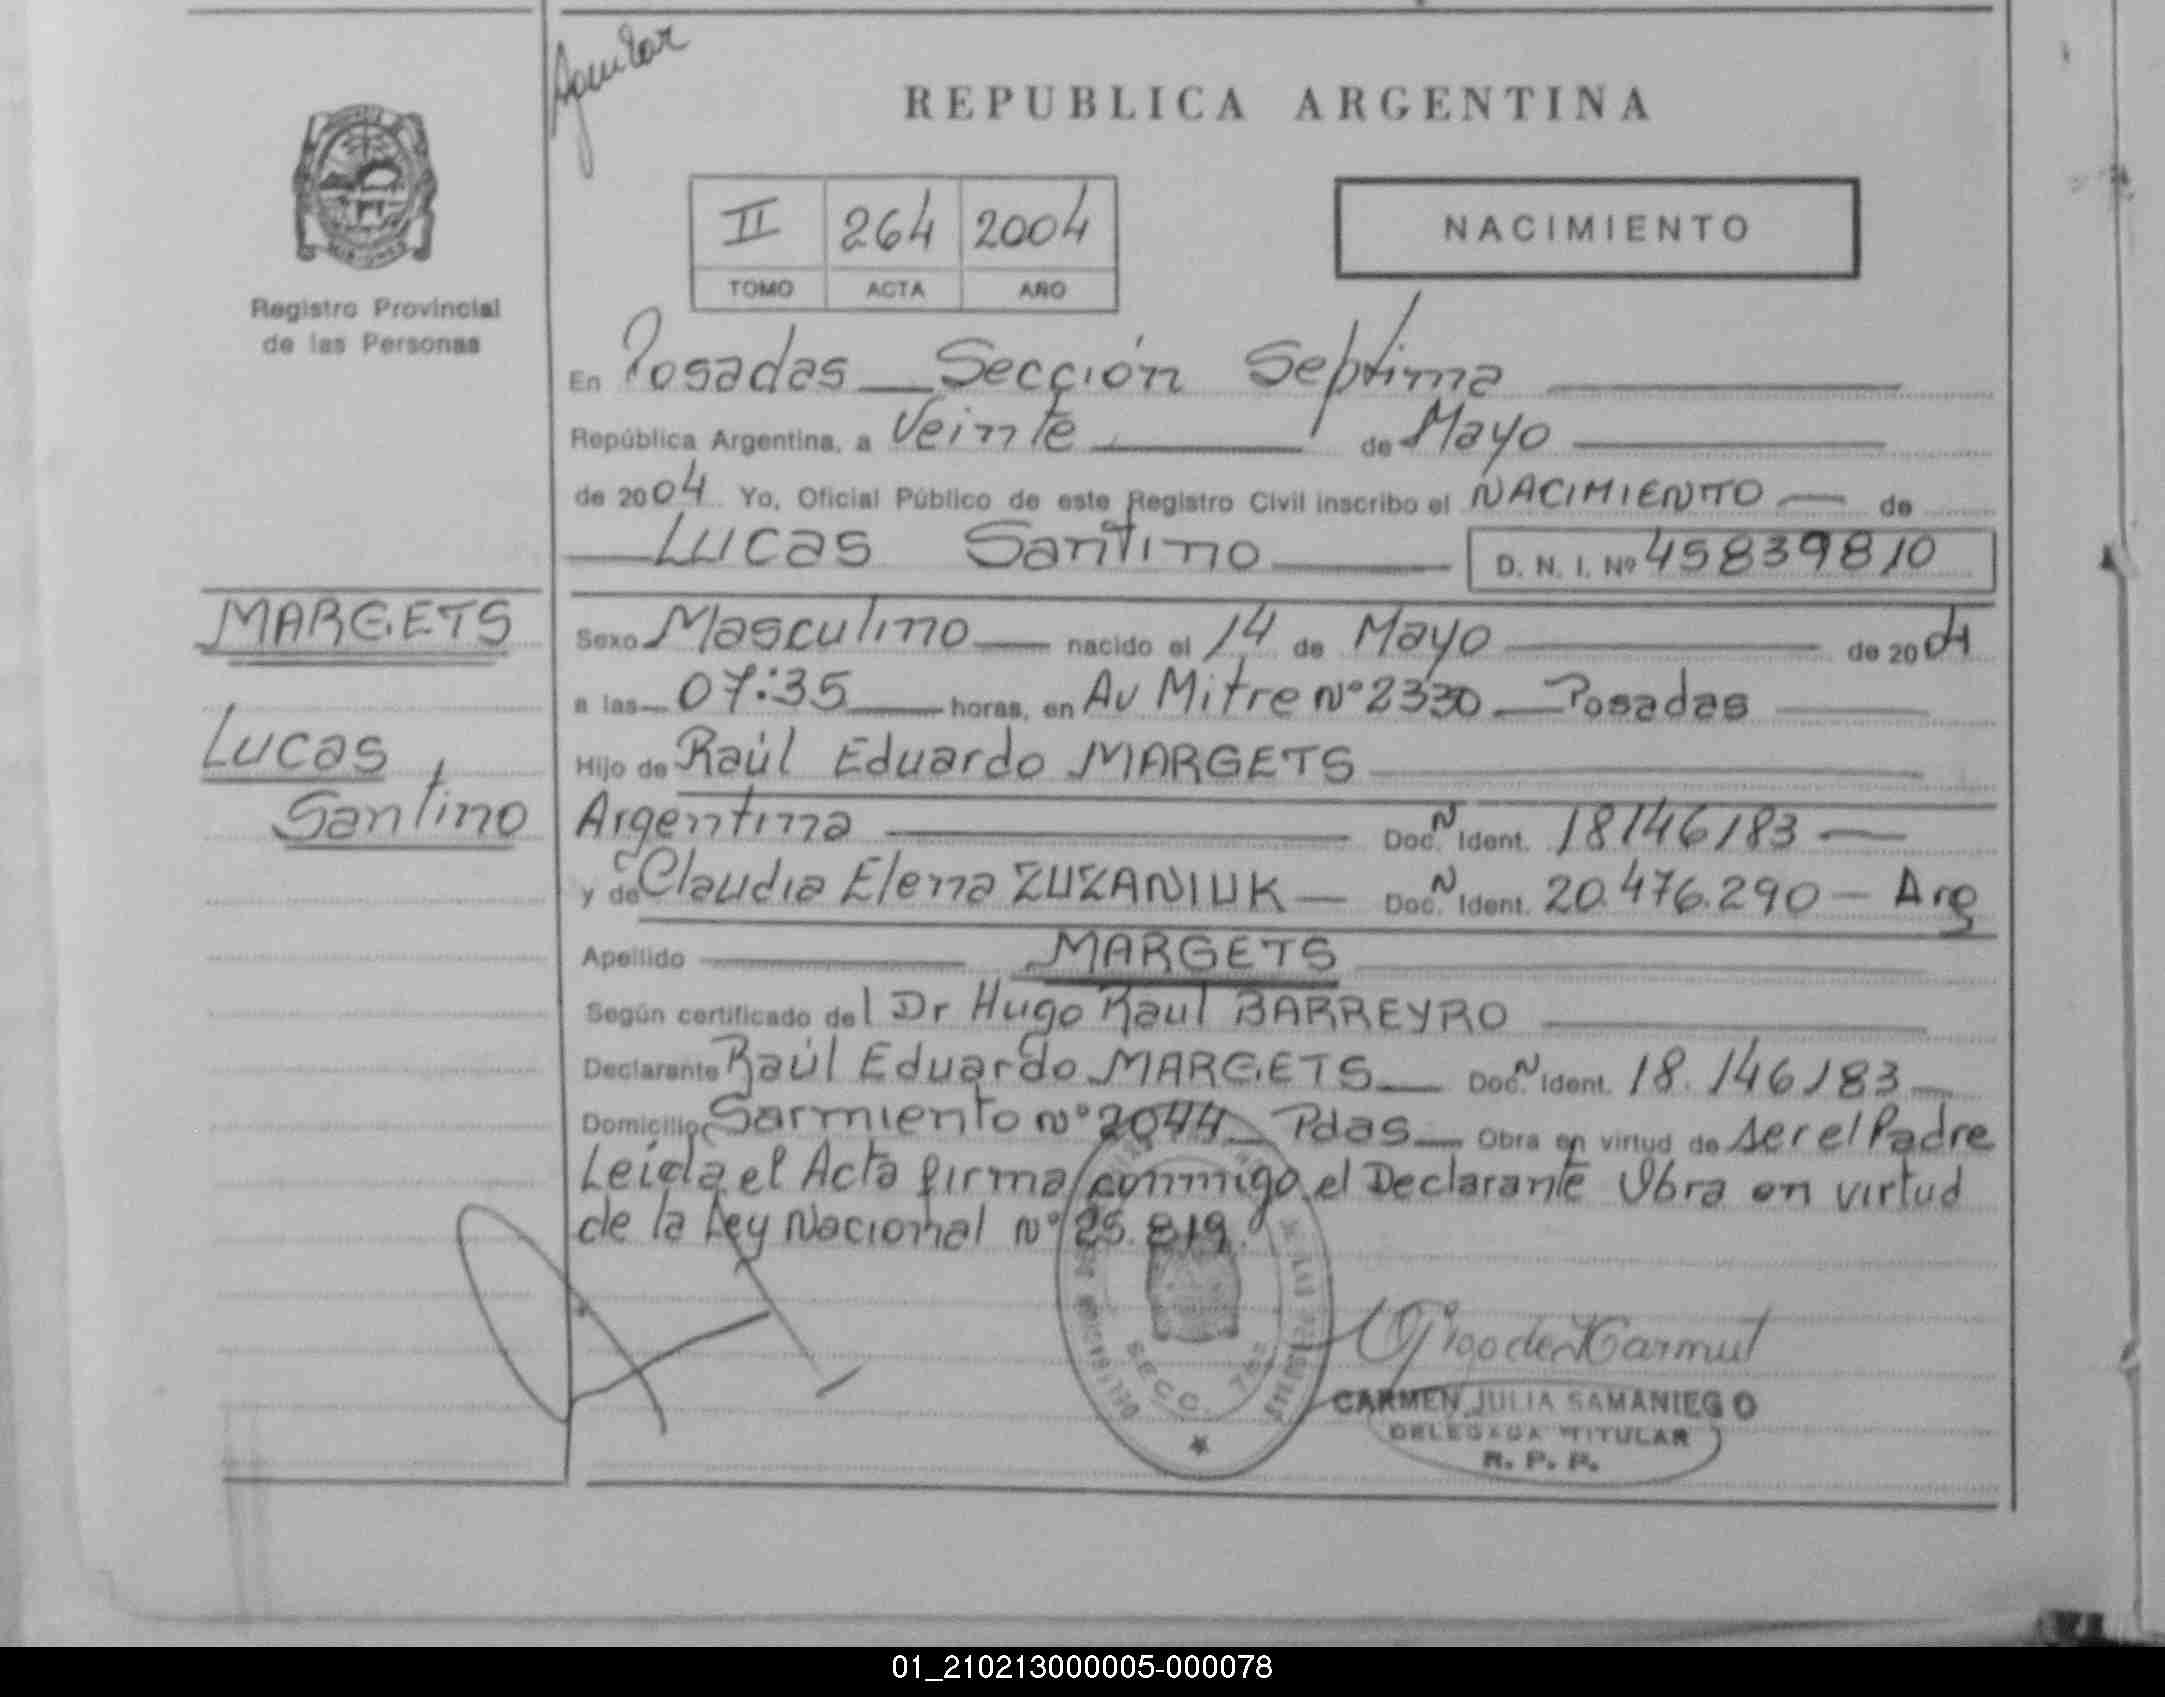 Aguilar
REPUBLICA ARGENTINA
Registro Provincial
de las Personas
II 264 2004
TOMO ACTA AÑO
NACIMIENTO
En Posadas Sección Septima
República Argentina, a Veinte de Mayo
de 2004 Yo, Oficial Público de este Registro Civil inscribo el NACIMIENTO de
Lucas Santino D. N. I. Nº 45839810
MARGETS
Lucas
Santino
Sexo Masculino nacido el 14 de Mayo de 2004
a las 07:35 horas, en Av Mitre Nº 2330 Posadas
Hijo de Raúl Eduardo MARGETS
Argentina Doc. N Ident. 18146183
y de Claudia Elena ZUZANIUK Doc. N Ident. 20.476.290 - Arg
Apellido MARGETS
Según certificado del Dr Hugo Raul BARREYRO
Declarante Raúl Eduardo MARGETS Doc. N Ident. 18.146183
Domicilio Sarmiento Nº 2044 Pdas Obra en virtud de ser el Padre
Leida el Acta firma conmigo el Declarante Obra en virtud
de la Ley Nacional Nº 25.819.
SECC. 7
CARMEN JULIA SAMANIEGO
DELEGADA TITULAR
R. P. P.
01_210213000005-000078